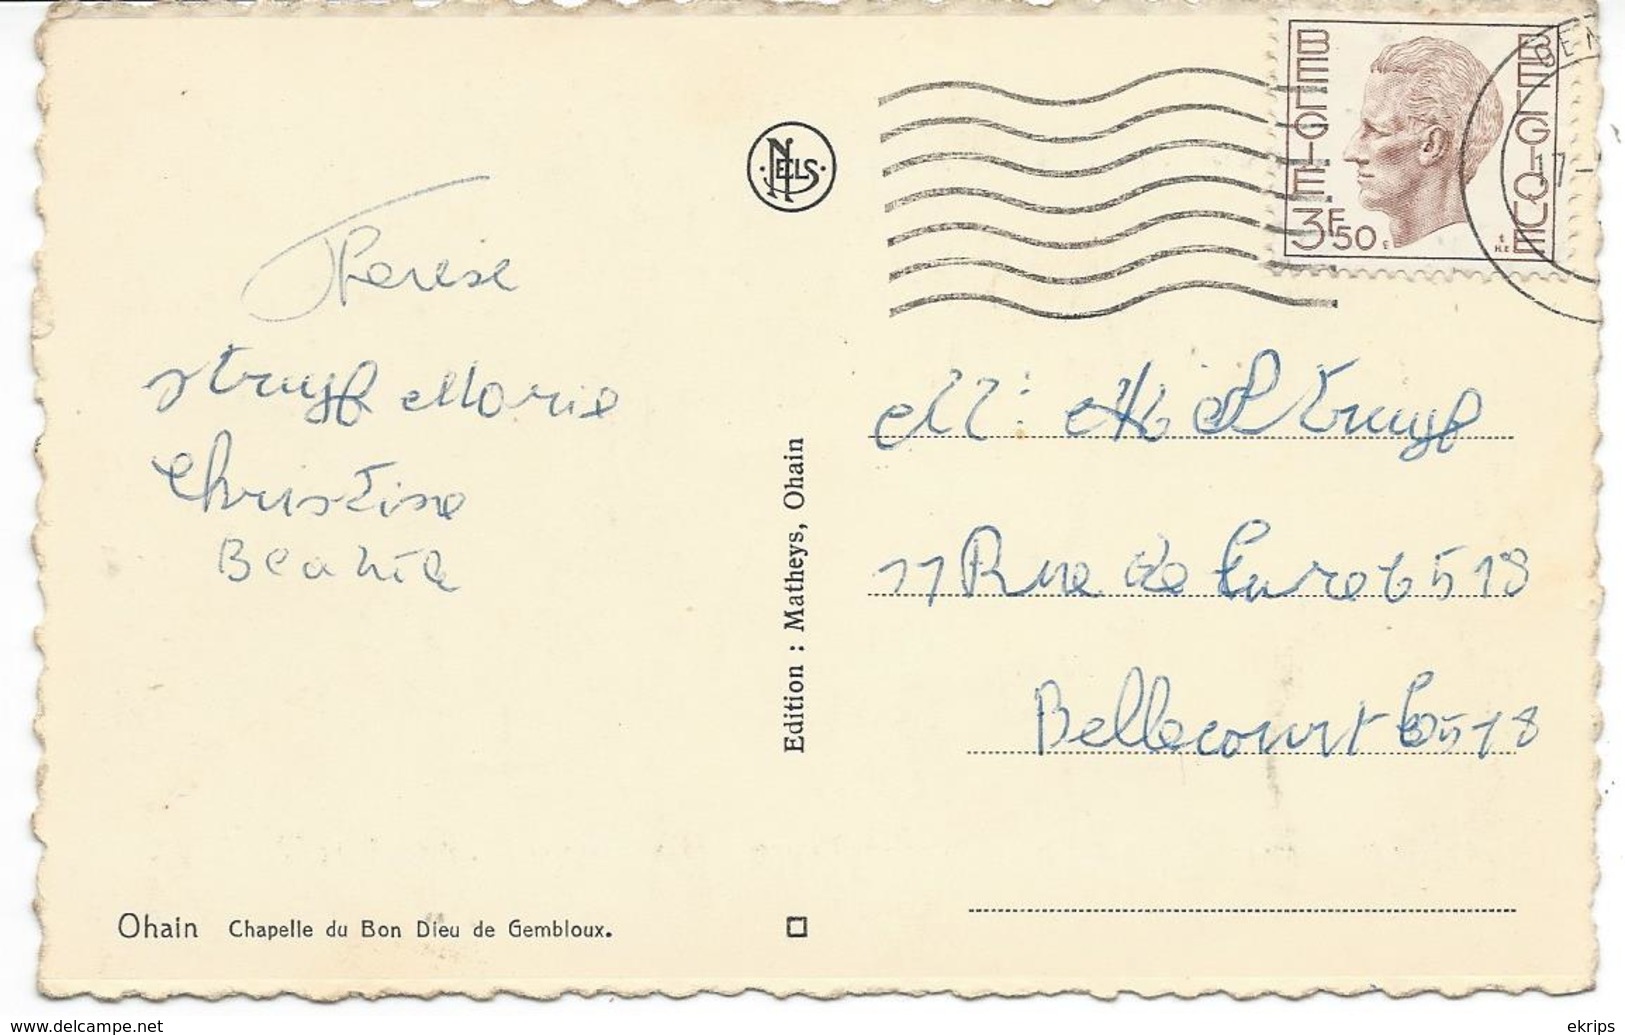 BELGIE
BELGIQUE
3F50
NELS
Therese
Struyf Marie
Christine
17-
Edition : Matheys, Ohain
Struyf
11 Rue de 6518
Bellecourt 6518
Ohain Chapelle du Bon Dieu de Gembloux.
www.delcampe.net
ekrips